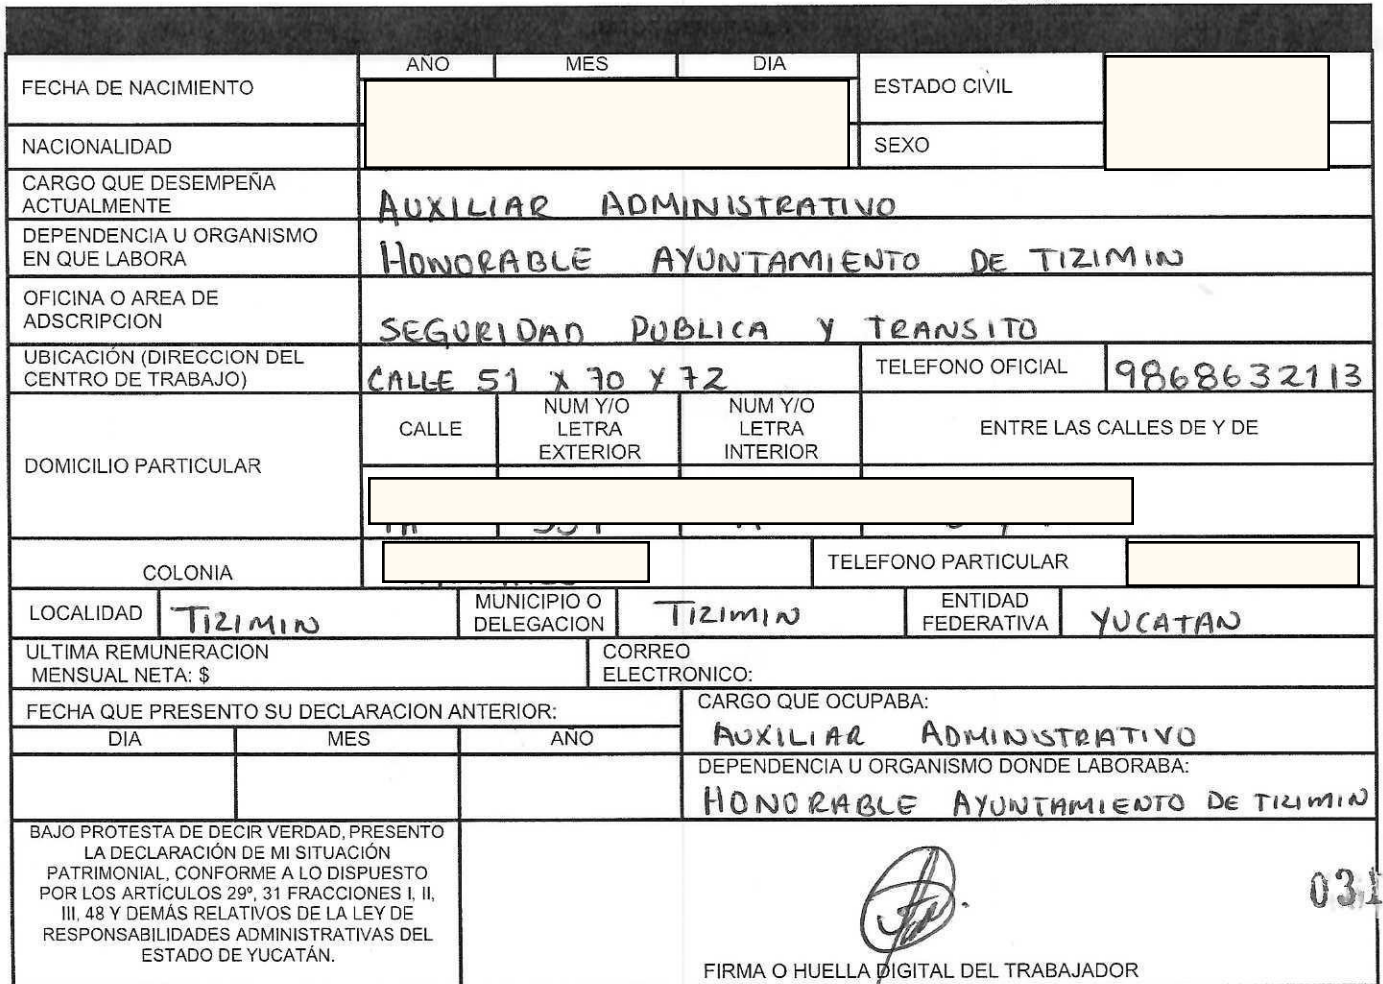 AÑO MES DIA
FECHA DE NACIMIENTO ESTADO CIVIL
NACIONALIDAD SEXO
CARGO QUE DESEMPEÑA
ACTUALMENTE AUXILIAR ADMINISTRATIVO
DEPENDENCIA U ORGANISMO
EN QUE LABORA HONORABLE AYUNTAMIENTO DE TIZIMIN
OFICINA O AREA DE
ADSCRIPCION SEGURIDAD PUBLICA Y TRANSITO
UBICACIÓN (DIRECCION DEL
CENTRO DE TRABAJO) CALLE 51 X 70 Y 72 TELEFONO OFICIAL 9868632113
DOMICILIO PARTICULAR
CALLE
NUM Y/O
LETRA
EXTERIOR
NUM Y/O
LETRA
INTERIOR
ENTRE LAS CALLES DE Y DE
COLONIA TELEFONO PARTICULAR
LOCALIDAD TIZIMIN
MUNICIPIO O
DELEGACION TIZIMIN
ENTIDAD
FEDERATIVA YUCATAN
ULTIMA REMUNERACION
MENSUAL NETA: $
CORREO
ELECTRONICO:
FECHA QUE PRESENTO SU DECLARACION ANTERIOR:
DIA MES AÑO
CARGO QUE OCUPABA:
AUXILIAR ADMINISTRATIVO
DEPENDENCIA U ORGANISMO DONDE LABORABA:
HONORABLE AYUNTAMIENTO DE TIZIMIN
BAJO PROTESTA DE DECIR VERDAD, PRESENTO
LA DECLARACIÓN DE MI SITUACIÓN
PATRIMONIAL, CONFORME A LO DISPUESTO
POR LOS ARTÍCULOS 29º, 31 FRACCIONES I, II,
III, 48 Y DEMÁS RELATIVOS DE LA LEY DE
RESPONSABILIDADES ADMINISTRATIVAS DEL
ESTADO DE YUCATÁN.
031
FIRMA O HUELLA DIGITAL DEL TRABAJADOR